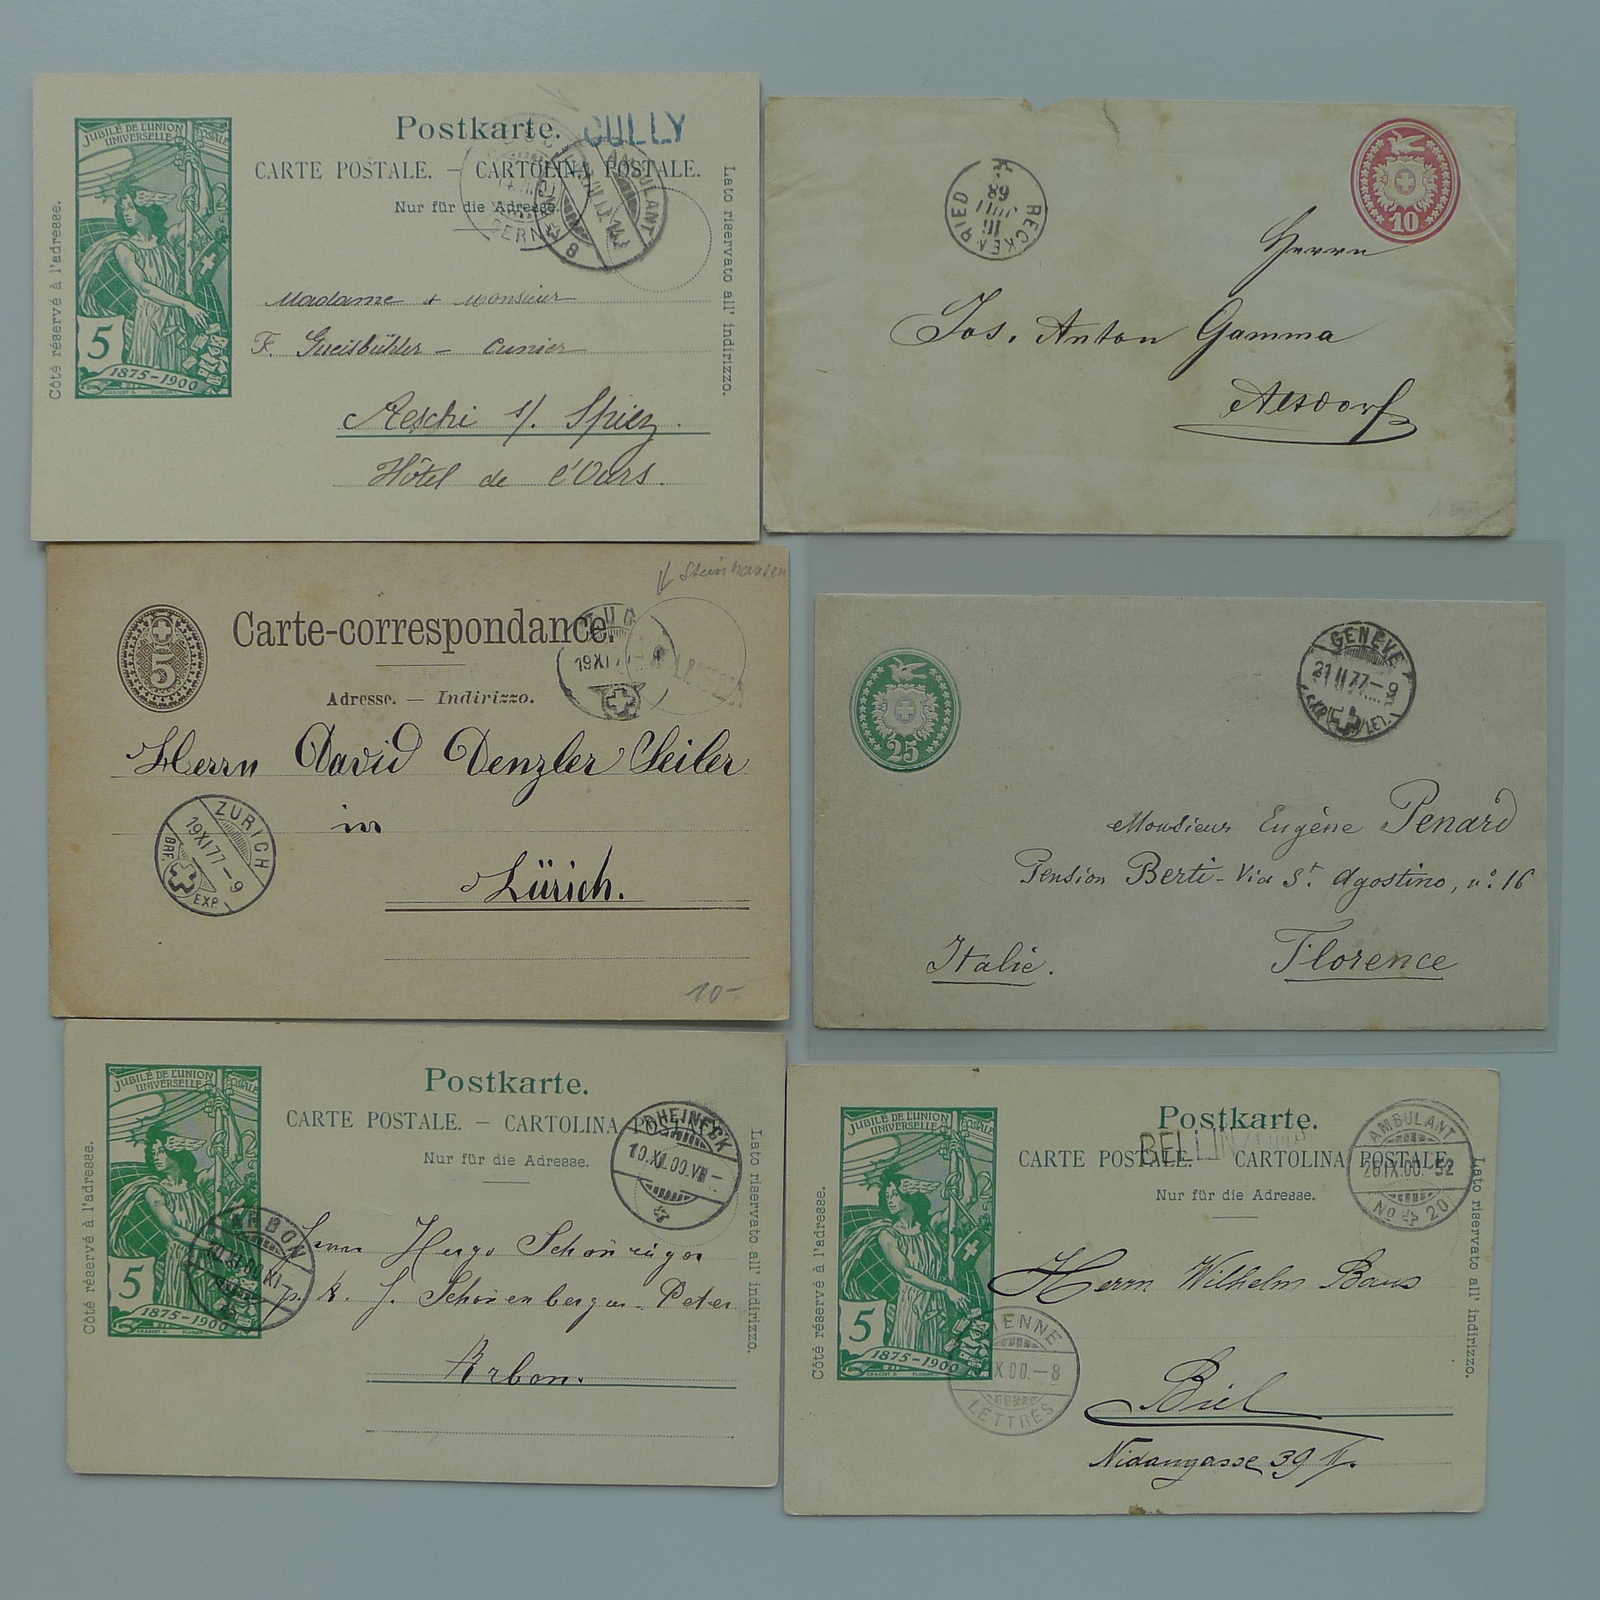 JUBILÉ DE L'UNION
UNIVERSELLE POSTALE
5
1875-1900
Côté réservé à l'adresse.
Postkarte.
CULLY
CARTE POSTALE. — CARTOLINA POSTALE.
Nur für die Adresse.
AMBULANT
8
Lato riservato all' indirizzo.
Madame & Monsieur
F. Gneisbühler - Cunier
Aeschi s/. Spiez.
Hôtel de l'Ours.
10
BECKENRIED
Herrn
Jos. Anton Gamma
Altdorf
Steinhausen
5
Carte-correspondance.
ZUG
19 XI
Adresse. — Indirizzo.
Herrn David Denzler Seiler
in
Zürich.
ZURICH
19 XI 77-9
BRF. EXP.
10-
25
GENÈVE
21 II 77-9
EXP. LET.
Monsieur Eugène Penard
Pension Berti - Via St. Agostino, no. 16
Florence
Italie.
JUBILÉ DE L'UNION
UNIVERSELLE POSTALE
5
1875-1900
Côté réservé à l'adresse.
Postkarte.
CARTE POSTALE. — CARTOLINA POSTALE.
Nur für die Adresse.
RHEINECK
10.XI.00.VII-
Lato riservato all' indirizzo.
ARBON
Hugo
p. A. J. Schönenberger-Peter
Arbon.
JUBILÉ DE L'UNION
UNIVERSELLE POSTALE
5
1875-1900
Côté réservé à l'adresse.
Postkarte.
BELLINZONA
CARTE POSTALE. CARTOLINA POSTALE.
Nur für die Adresse.
AMBULANT
26.IX.00. 52
No 20
Lato riservato all' indirizzo.
Herrn Wilhelm Baus
BIENNE
X.00.-8
LETTRES
Biel
Nidaugasse 39